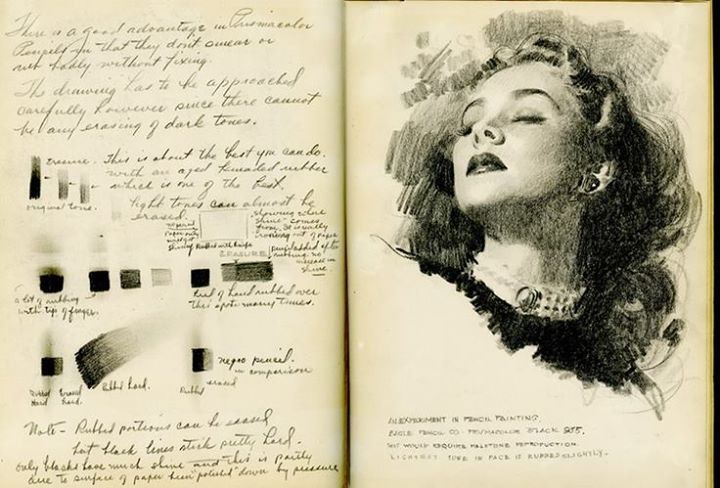 There is a good advantage in Prismacolor
Pencils in that they don't smear or
rub badly without fixing.
The drawing has to be approached
carefully however since there cannot
be any erasing of dark tones.
erasure. This is about the best you can do.
with an aged kneaded rubber
which is one of the best.
original tone.
Light tones can almost be
erased.
showing where
shine comes
from. It is usually
ironing out of paper
Rubbed with knife
ERASURE
pencil added after
rubbing no
increase in
shine.
a lot of rubbing
with tips of finger.
heel of hand rubbed over
this spot many times.
negro pencil.
in comparison
Rubbed
Hard
Erased
hard.
Rubbed hard.
Rubbed
erased
Note - Rubbed portions can be erased
but black lines stick pretty hard.
only blacks have much shine and this is partly
due to surface of paper been "polished" down by pressure
AN EXPERIMENT IN PENCIL PAINTING.
EAGLE PENCIL CO - PRISMACOLOR BLACK 935.
THIS WOULD REQUIRE HALFTONE REPRODUCTION.
LIGHTEST TONE IN FACE IS RUBBED SLIGHTLY.